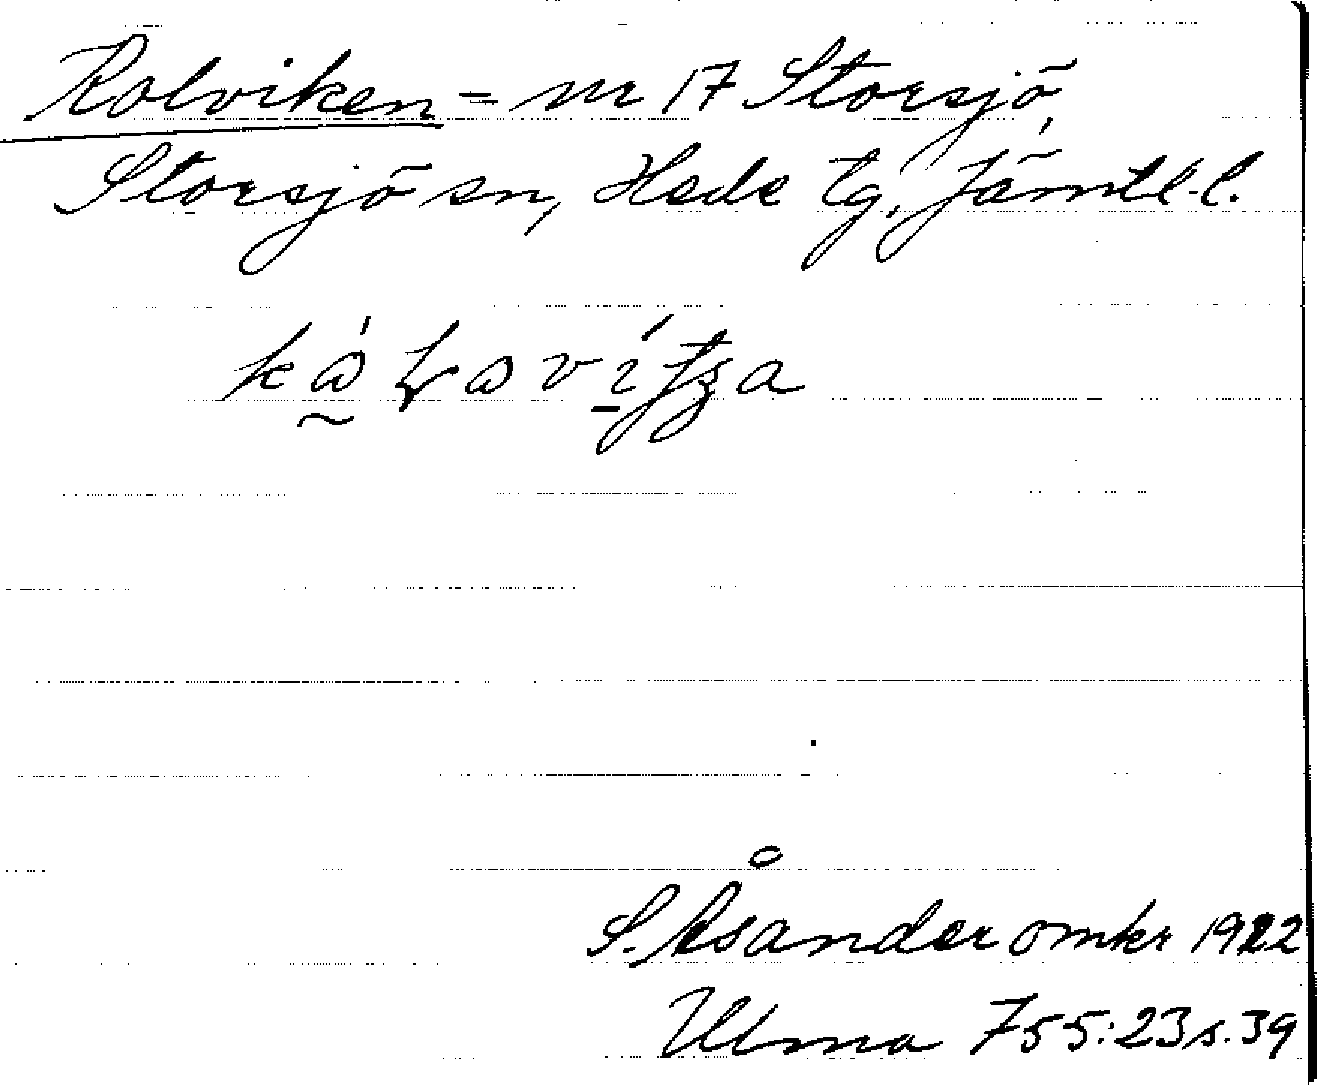 Kolviken = nr 17 Storsjö,
Storsjö sn, Hede tg, Jämtl. l.
S. Åsander omkr 1922
Ulma 755:23 s. 39